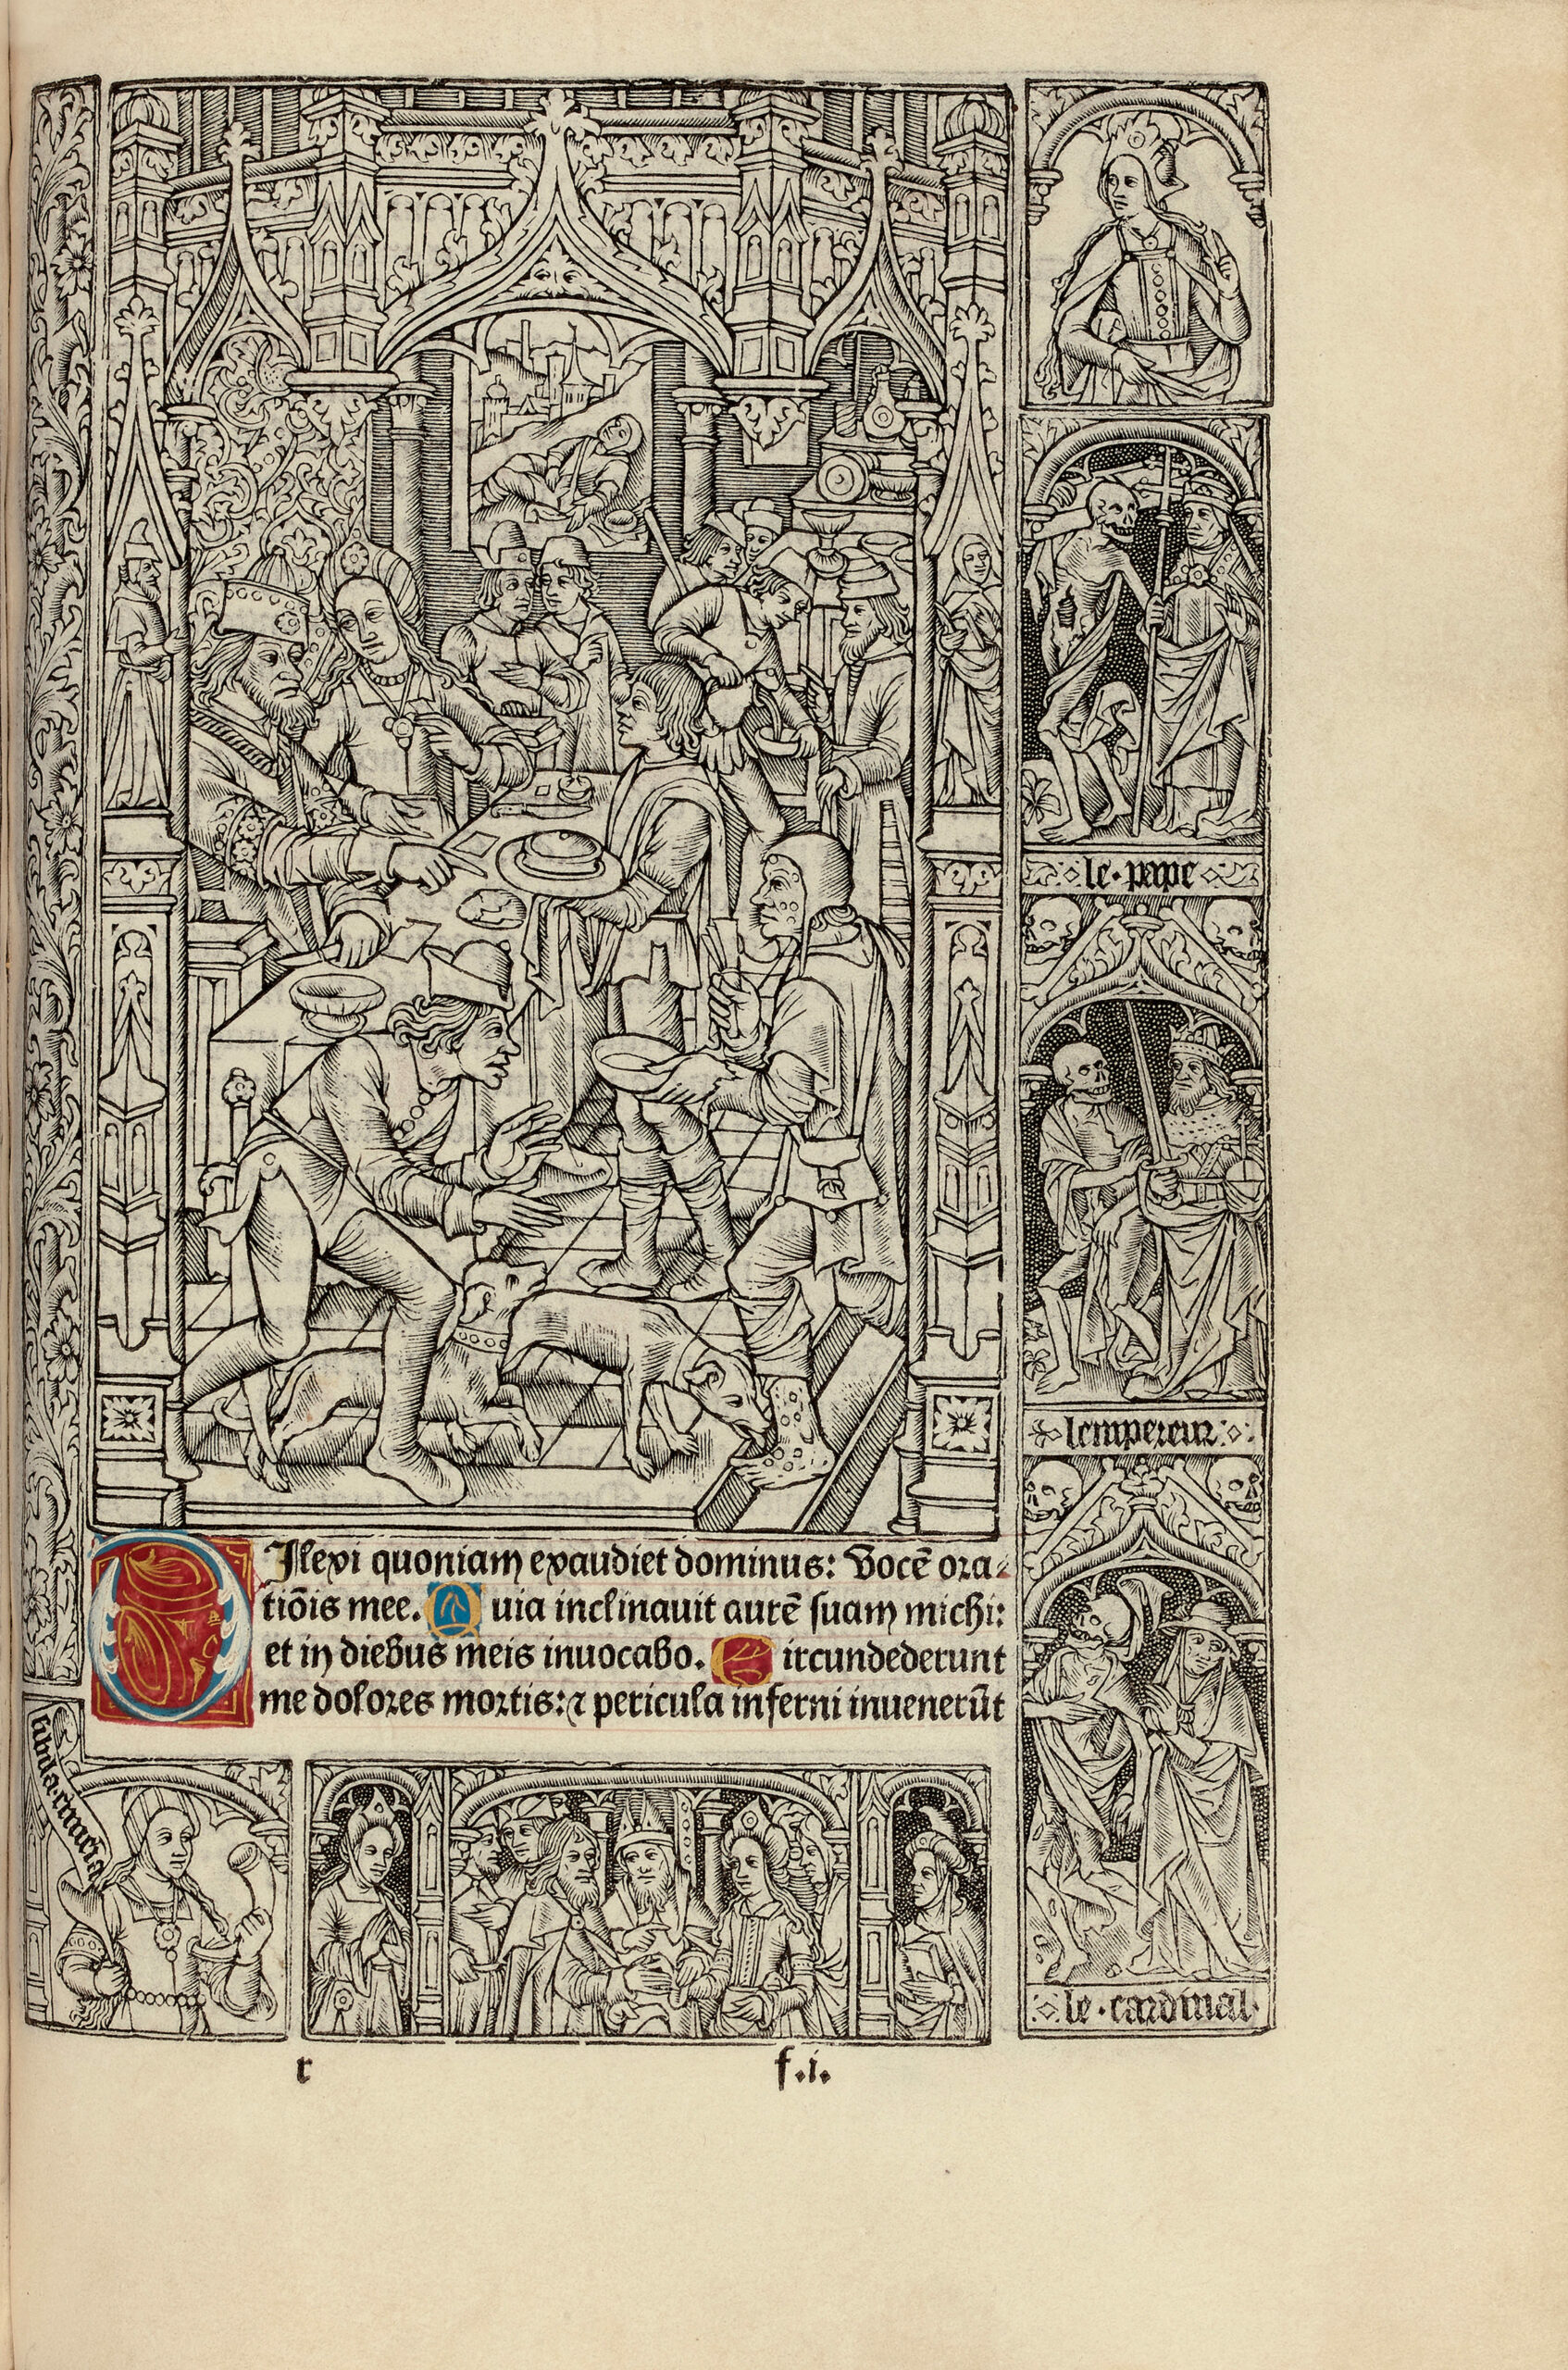 Dilexi quoniam exaudiet dominus: Vocē ora⸗
tiōis mee. Quia inclinauit aurē suam michi:
et in diebus meis inuocabo. Circundederunt
me dolores mortis: ⁊ pericula inferni inuenerūt
le · pape
lempereur
le · cardinal
r f.i.